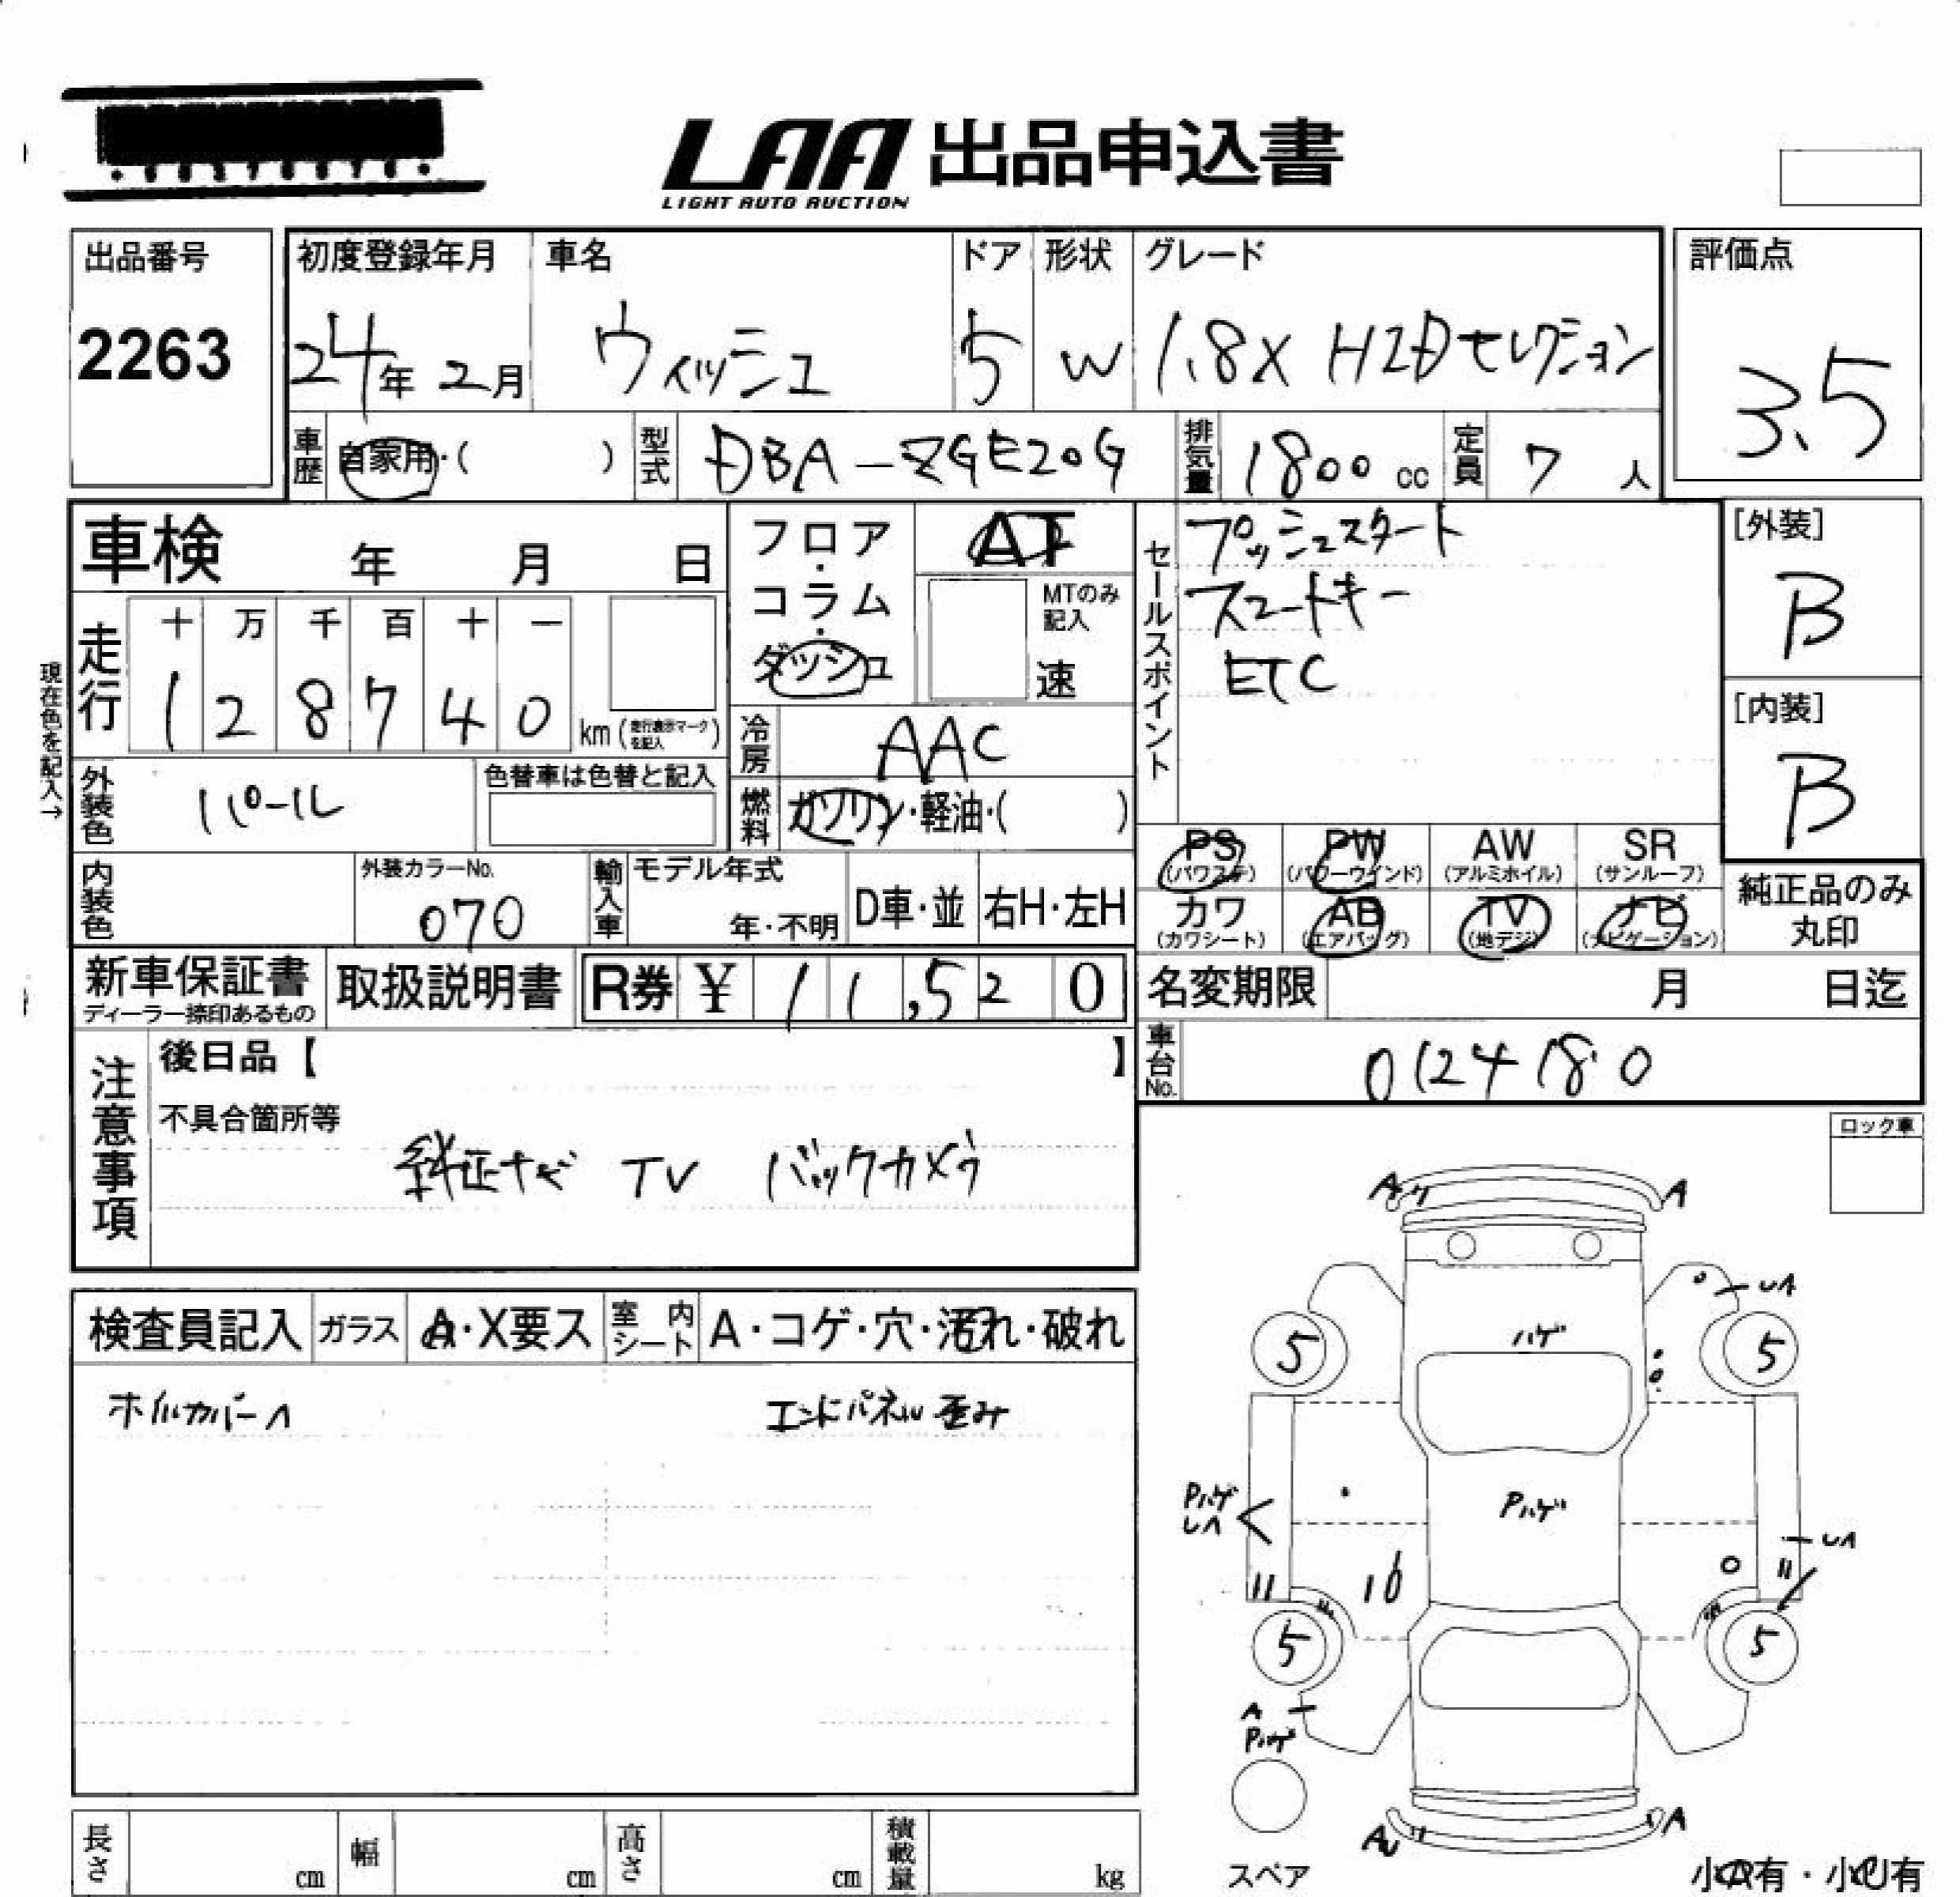 LAA 出品申込書
LIGHT AUTO AUCTION
出品番号
2263
初度登録年月
24年 2月
車名
ウィッシュ
ドア
5
形状
W
グレード
1.8X HIDセレクション
評価点
3.5
車歴
自家用・( )
型式
DBA-ZGE20G
排気量
1800 cc
定員
7 人
車検 年 月 日
フロア・コラム・ダッシュ
AT
MTのみ記入
速
セールスポイント
プッシュスタート
スマートキー
ETC
[外装]
B
[内装]
B
現在色を記入→
走行
十 万 千 百 十 一
1 2 8 7 4 0 km (走行表示マークを記入)
冷房
AAC
燃料
ガソリン・軽油・( )
外装色
パール
色替車は色替と記入
内装色
外装カラーNo.
070
輸入車
モデル年式
年・不明
D車・並
右H・左H
PS
(パワステ)
PW
(パワーウインド)
AW
(アルミホイル)
SR
(サンルーフ)
カワ
(カワシート)
AB
(エアバッグ)
TV
(地デジ)
ナビ
(ナビゲーション)
純正品のみ
丸印
新車保証書
ディーラー捺印あるもの
取扱説明書
R券 ¥ 1 1,5 2 0
名変期限 月 日迄
車台No.
0124180
注意事項
後日品【 】
不具合箇所等
純正ナビ TV バックカメラ
ロック車
検査員記入
ガラス
A・X要ス
室内シート
A・コゲ・穴・汚れ・破れ
ホイルカバーA
エンドパネル歪み
A
A
UA
ハゲ
5
5
Pハゲ
UA
Pハゲ
UA
5
5
A
Pハゲ
AU
A
スペア
長さ cm
幅 cm
高さ cm
積載量 kg
小A有・小U有